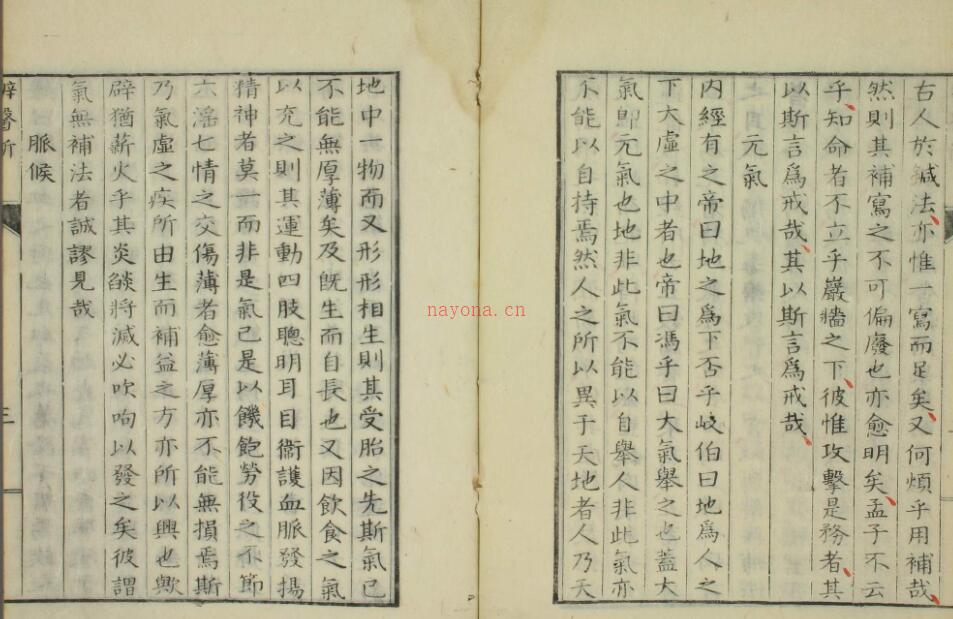 古人於鍼法亦惟一寫而足矣又何煩乎用補哉
然則其補寫之不可偏廢也亦愈明矣孟子不云
乎知命者不立乎巖牆之下彼惟攻擊是務者其
以斯言爲戒哉其以斯言爲戒哉
元氣
內經有之帝曰地之爲下否乎岐伯曰地爲人之
下大虛之中者也帝曰馮乎曰大氣舉之也蓋大
氣卽元氣也地非此氣不能以自舉人非此氣亦
不能以自持焉然人之所以異于天地者人乃天
地中一物而又形形相生則其受胎之先斯氣已
不能無厚薄矣及旣生而自長也又因飮食之氣
以充之則其運動四肢聰明耳目衞護血脈發揚
精神者莫一而非是氣已是以饑飽勞役之不節
六淫七情之交傷薄者愈薄厚亦不能無損焉斯
乃氣虛之疾所由生而補益之方亦所以興也歟
辟猶薪火乎其炎燄將滅必吹呴以發之矣彼謂
氣無補法者誠謬見哉
脈候
辟醫斷
三
nayona.cn